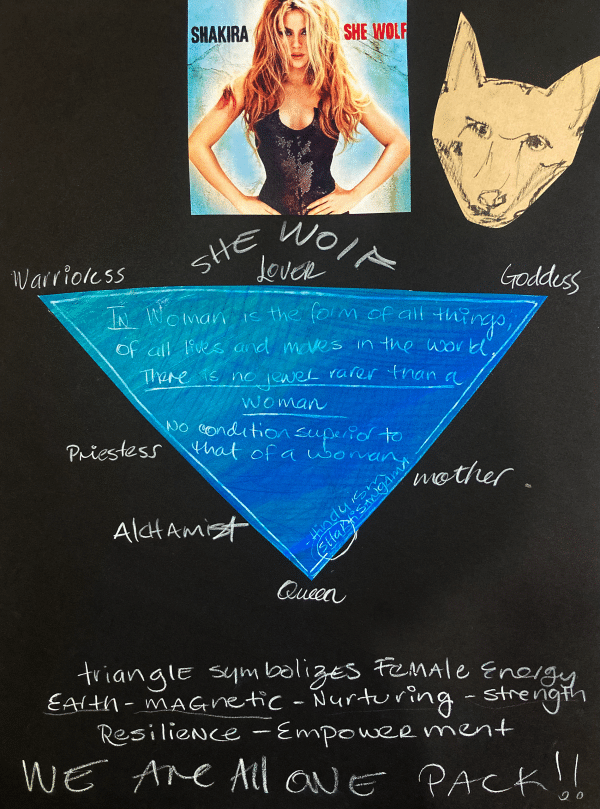 SHAKIRA
SHE WOLF
SHE WOLF
Warrioress
Lover
Goddess
In Woman is the form of all things,
of all lives and moves in the world.
There is no jewel rarer than a
woman
No condition superior to
that of a woman
Priestess
mother.
Alchamist
Queen
triangle symbolizes Female Energy
Earth - magnetic - Nurturing - strength
Resilience - Empowerment
WE ARE All ONE PACK!!